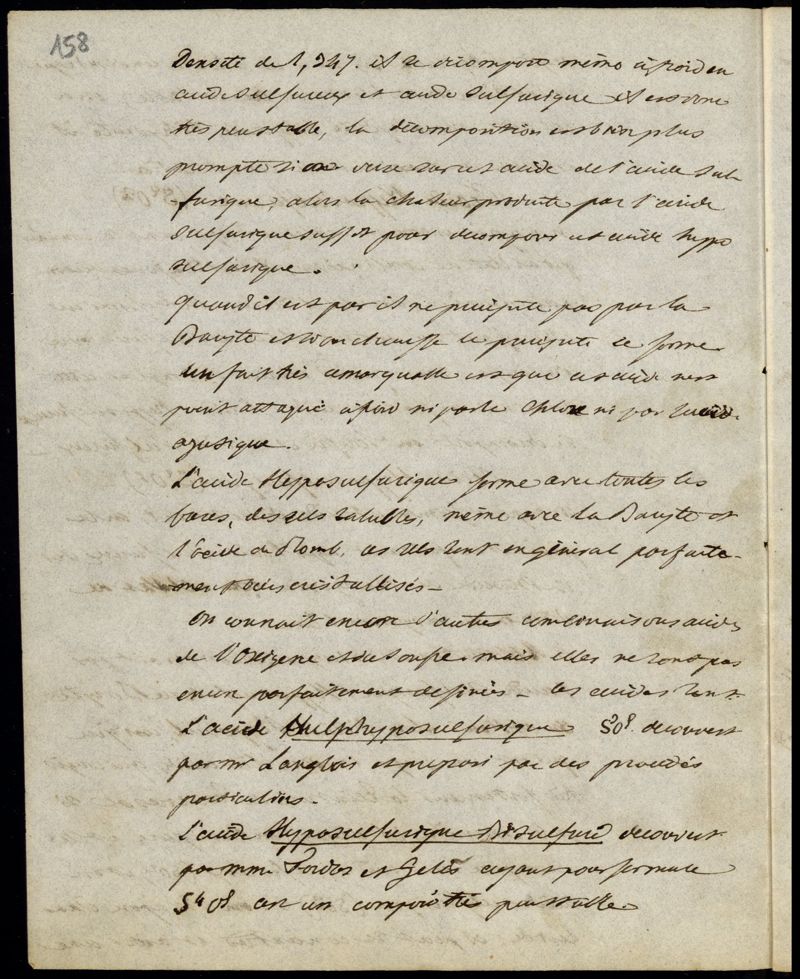 158
Densité de 1,347. il se décompose même à froid en
acide sulfureux et acide sulfurique il est donc
très peu stable, la décomposition est bien plus
prompte si on verse sur cet acide de l'acide sul
-furique, alors la chaleur produite par l'acide
sulfurique suffit pour décomposer cet acide hypo
sulfurique.
quand il est pur il ne précipite pas par la
Baryte et si on chauffe le précipité se forme
un fait très remarquable est que cet acide n'est
point attaqué à froid ni par le Chlore ni par l'acide
azotique.
L'acide Hyposulfurique forme avec toutes les
bases, des sels solubles, même avec la Baryte et
l'oxide de Plomb, ces sels sont en général parfaite-
ment bien cristallisés –
On connait encore d'autres combinaisons acides
de l'Oxigène et du Soufre mais elles ne sont pas
encore parfaitement définies – ces acides sont:
L'acide Sulphyposulfurique S3O5 découvert
par Mr Langlois et préparé par des procédés
particuliers.
L'acide Hyposulfurique Bisulfuré découvert
par MM. Fordos et Gélis ayant pour formule
S4O5 est un composé très peu stable